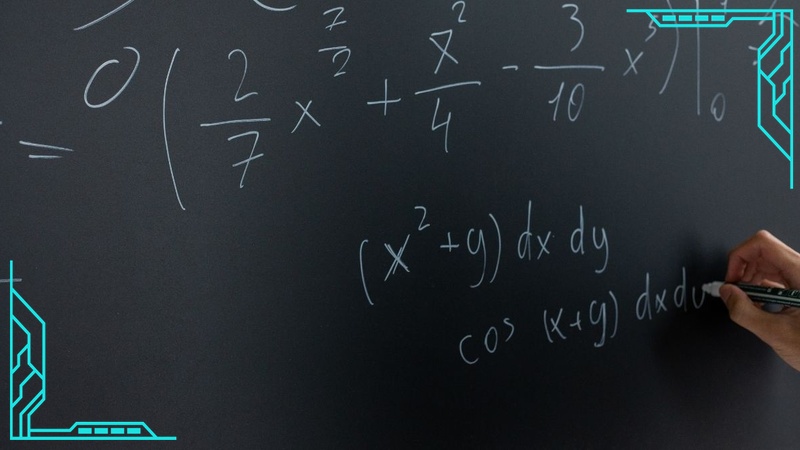 = 0 ( 2/7 x^7/2 + x^2/4 - 3/10 x^3 ) |_0
(x^2 + y) dx dy
cos (x+y) dx dy